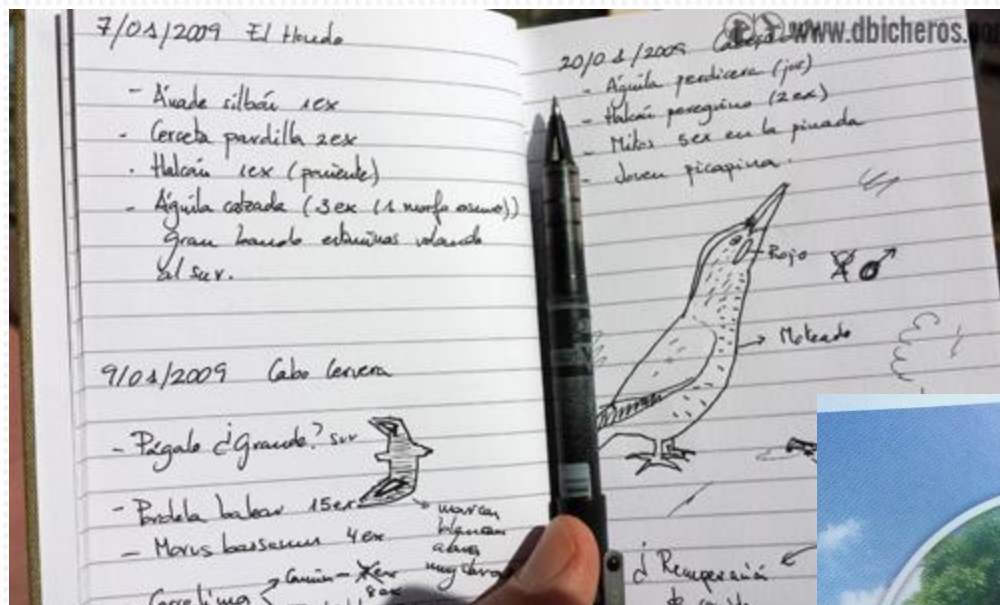 7/01/2009 El Hondo
- Ánade silbón 1ex
- Cerceta pardilla 2ex
- Halcón 1ex (poniente)
- Águila calzada (3ex (1 morfo oscuro))
Gran bando estorninos volando
al sur.
9/01/2009 Cabo Cervera
- Págalo ¿Grande? sur
- Pardela balear 15ex
marcas
blancas
muy claras
- Morus bassanus 4ex
www.dbicheros.
20/01/2009
- Águila perdicera (juv)
- Halcón peregrino (2ex)
- Mitos 5ex en la pinada
- Joven picapinos.
Rojo
Moteado
¿Recuperación